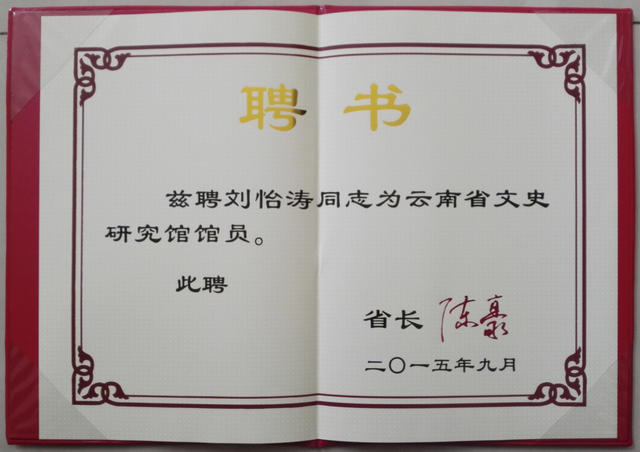 聘书
兹聘刘怡涛同志为云南省文史
研究馆馆员。
此聘
省长 陈豪
二〇一五年九月